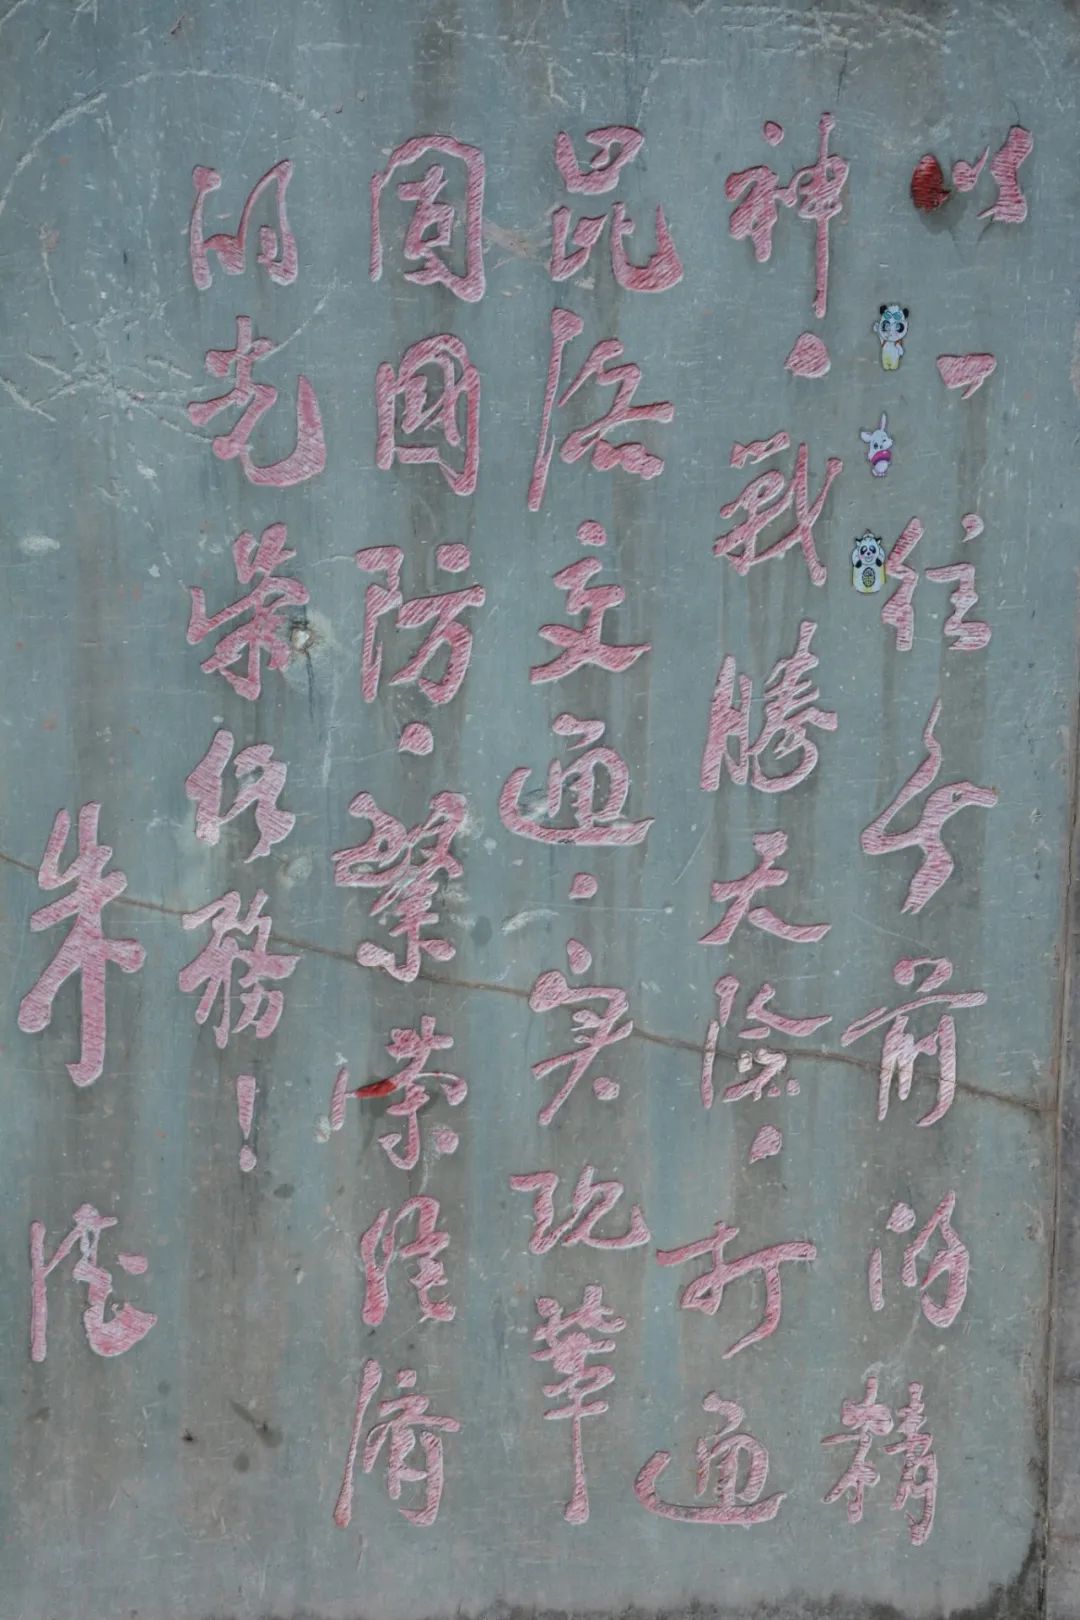 以一往无前的精
神·戰勝天险·打通
昆洛交通·实现鞏
固國防·繁荣经济
的光荣任務！
朱德